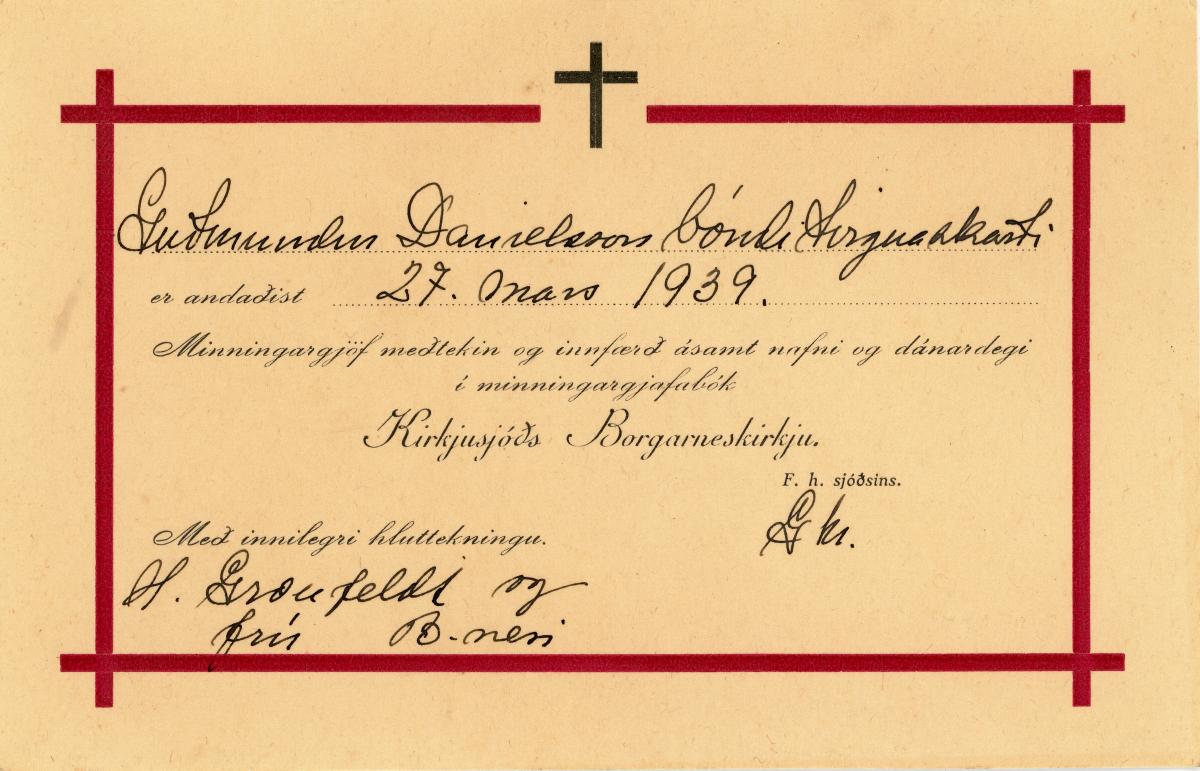 Guðmundur Danielsson bóndi Svignaskarði
er andaðist 27. Mars 1939.
Minningargjöf meðtekin og innfærð ásamt nafni og dánardegi
í minningargjafabók
Kirkjusjóðs Borgarneskirkju.
F. h. sjóðsins.
G kr.
Með innilegri hluttekningu.
H. Grönfeldt og
frú B-nesi